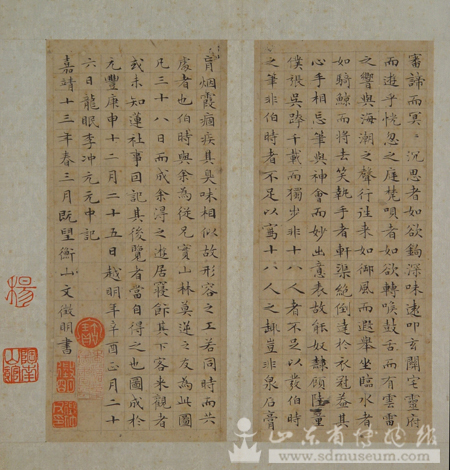 審諦而冥〻沉思者如欲鉤深味遠叩玄關宅靈府
而遊乎恍忽之庭梵唄者如欲轉喉鼓舌而有雲雷
之響與海潮之聲行往来如御風而遐舉坐臨水者
如騎鯨而將去笑執手者軒渠絕倒達於衣冠益其
心手相忘筆與神會而妙出意表故能奴隸顧陸童
僕張吳跨千載而獨步非十八人者不足以發伯時
之筆非伯時者不足以寫十八人之趣豈非泉石膏
肓烟霞痼疾其臭味相似故形容之工若同時而共
處者也伯時與余為從兄實山林莫逆之友為此圖
凡三十八日而成余得之遊居寢飯其下客来觀者
或未知蓮社事因記其後覽者當自得之也圖成於
元豐庚申十二月二十五日越明年辛酉正月二十
六日龍眠李冲元元中記
嘉靖十三年春三月既望衡山文徵明書
楊
山东省博物馆
www.sdmuseum.com